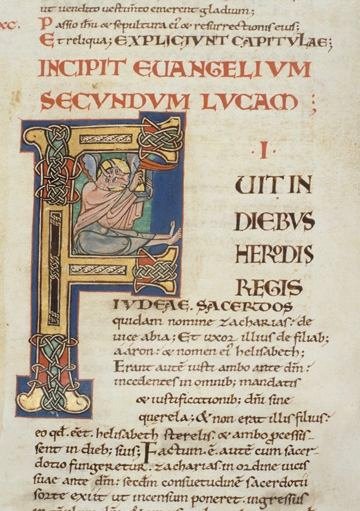 ut vendito vestimto emerent gladium;
xc. Passio ihu & sepultura ei' & resurrectionis eius;
Et reliqua; EXPLICIUNT CAPITULAE;
INCIPIT EUANGELIUM
SECUNDUM LUCAM;
·I·
FUIT IN
DIEBUS
HERODIS
REGIS
IUDEAE. SACERDOS
quidam nomine zacharias; de
uice abia; Et uxor illius de filiab;
aaron; & nomen ei' helisabeth;
Erant aute iusti ambo ante dm;
incedentes in omnib; mandatis
& iustificationib; dni sine
querela; & non erat illis filius;
eo qd eet helisabeth sterelis & ambo pcessis-
sent in dieb; suis; Factum e aute cum sacer-
dotio fungeretur zacharias in ordine uicis
suae ante dm; secdm consuetudine sacerdotii
sorte exiit ut incensum poneret. ingressus